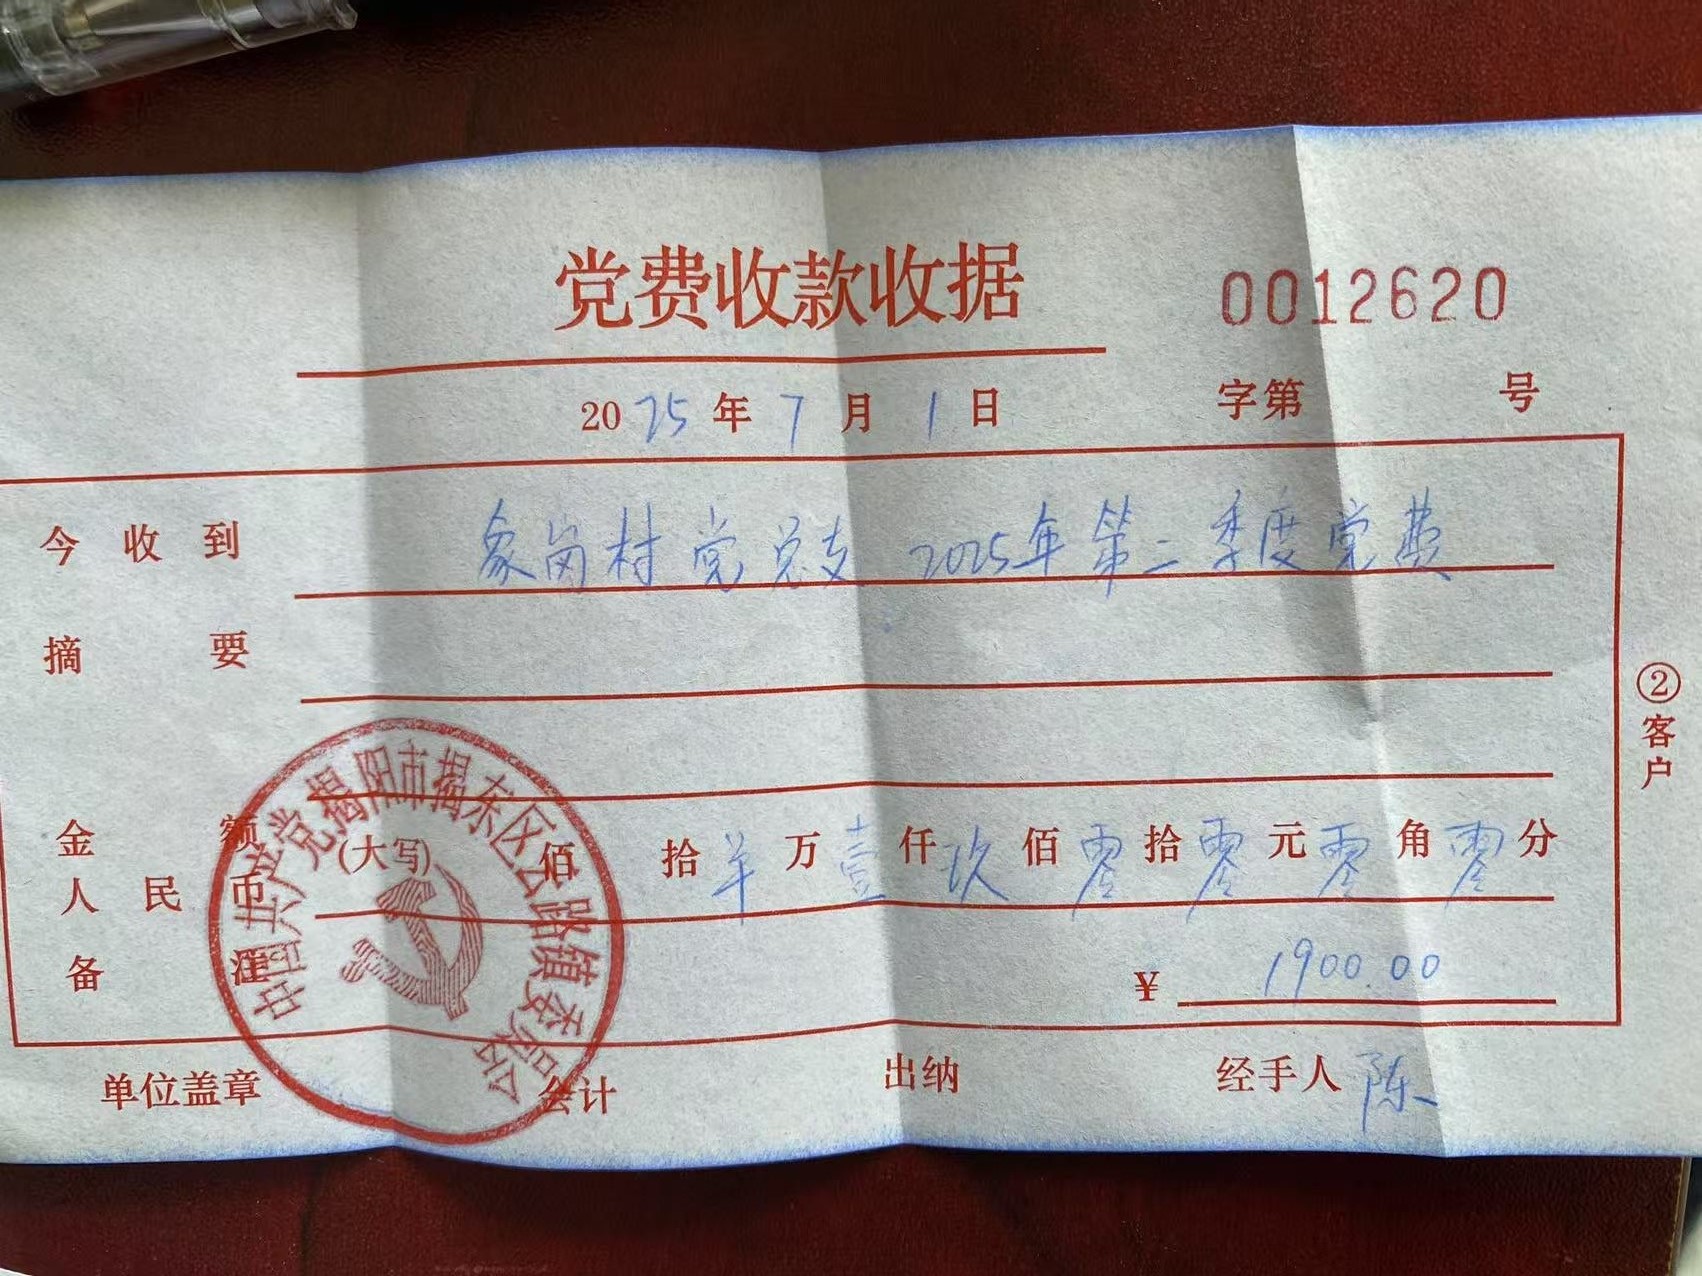 党费收款收据
0012620
2025年7月1日
字第 号
今收到 象岗村党总支 2025年第二季度党费
摘要
金额 (大写) 佰 拾 羊 万 壹 仟 玖 佰 零 拾 零 元 零 角 零 分
人民币
备注 ¥ 1900.00
单位盖章 会计 出纳 经手人 陈
②客户
中国共产党揭阳市揭东区云路镇委员会